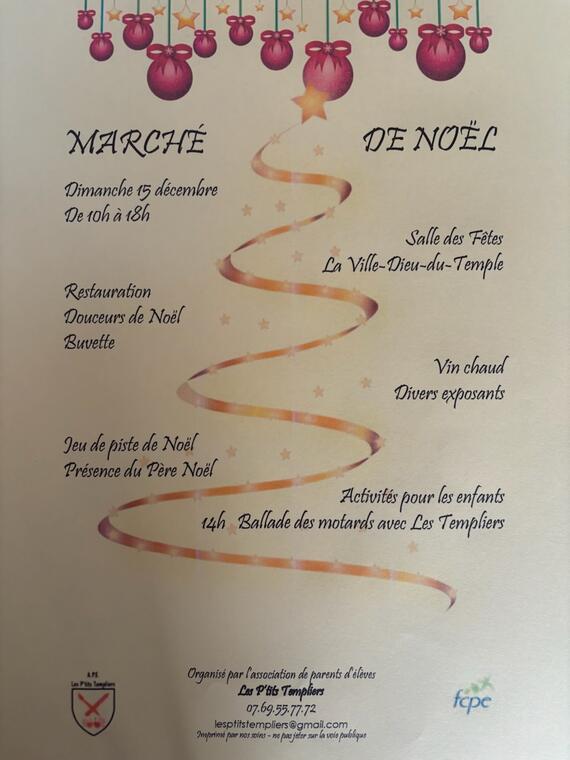 MARCHÉ DE NOËL
Dimanche 15 décembre
De 10h à 18h
Salle des Fêtes
La Ville-Dieu-du-Temple
Restauration
Douceurs de Noël
Buvette
Vin chaud
Divers exposants
Jeu de piste de Noël
Présence du Père Noël
Activités pour les enfants
14h Ballade des motards avec Les Templiers
Organisé par l'association de parents d'élèves
Les P'tits Templiers
07.69.55.77.72
lesptitstempliers@gmail.com
Imprimé par nos soins - ne pas jeter sur la voie publique
A.P.E
Les P'tits Templiers
fcpe